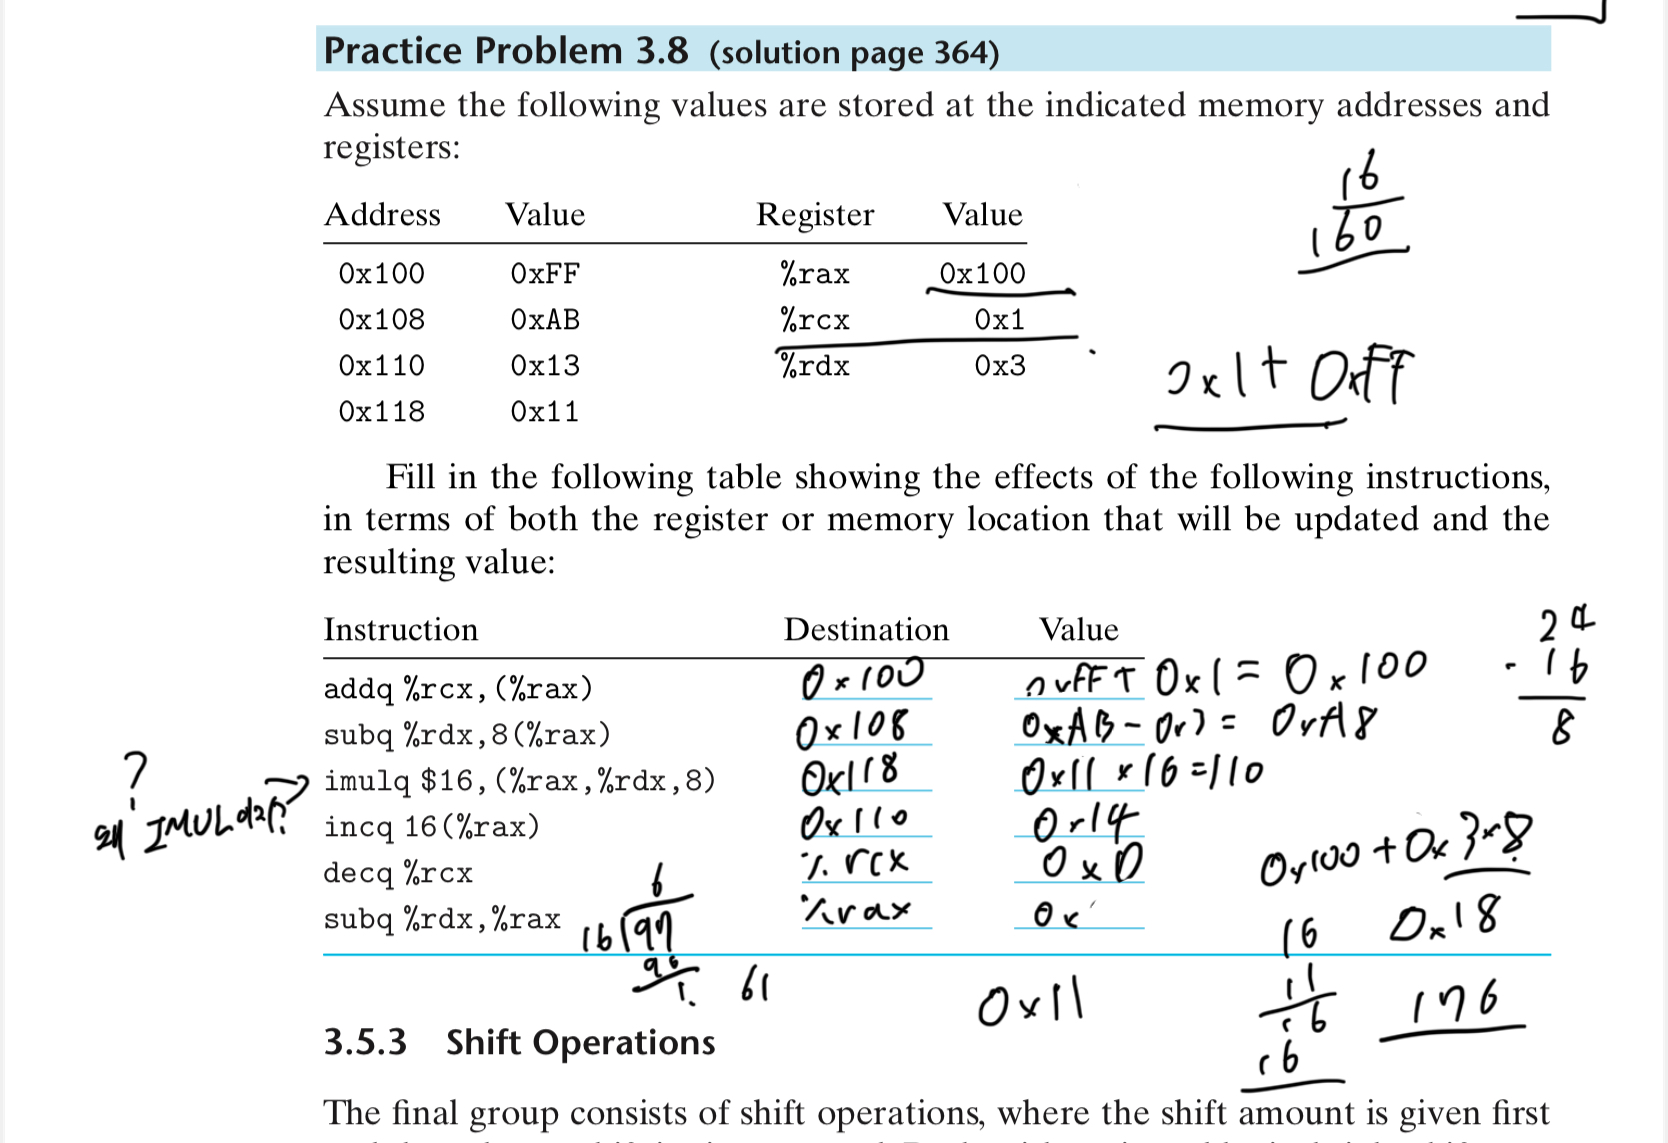 Practice Problem 3.8 (solution page 364)
Assume the following values are stored at the indicated memory addresses and
registers:
16
160
Address Value Register Value
0x100 0xFF %rax 0x100
0x108 0xAB %rcx 0x1
0x110 0x13 %rdx 0x3
0x118 0x11
0x1+ 0xFF
Fill in the following table showing the effects of the following instructions,
in terms of both the register or memory location that will be updated and the
resulting value:
Instruction Destination Value
addq %rcx,(%rax) 0x100 0xFF + 0x1 = 0x100
subq %rdx,8(%rax) 0x108 0xAB - 0x3 = 0xA8
imulq $16,(%rax,%rdx,8) 0x118 0x11 * 16 = 110
incq 16(%rax) 0x110 0x14
decq %rcx %rcx 0x0
subq %rdx,%rax %rax 0x
24
- 16
8
?
왜 IMUL
0x100 + 0x3*8
0x18
6
16 97
96
1.
61
0x11
16
11
16
16
176
3.5.3 Shift Operations
The final group consists of shift operations, where the shift amount is given first